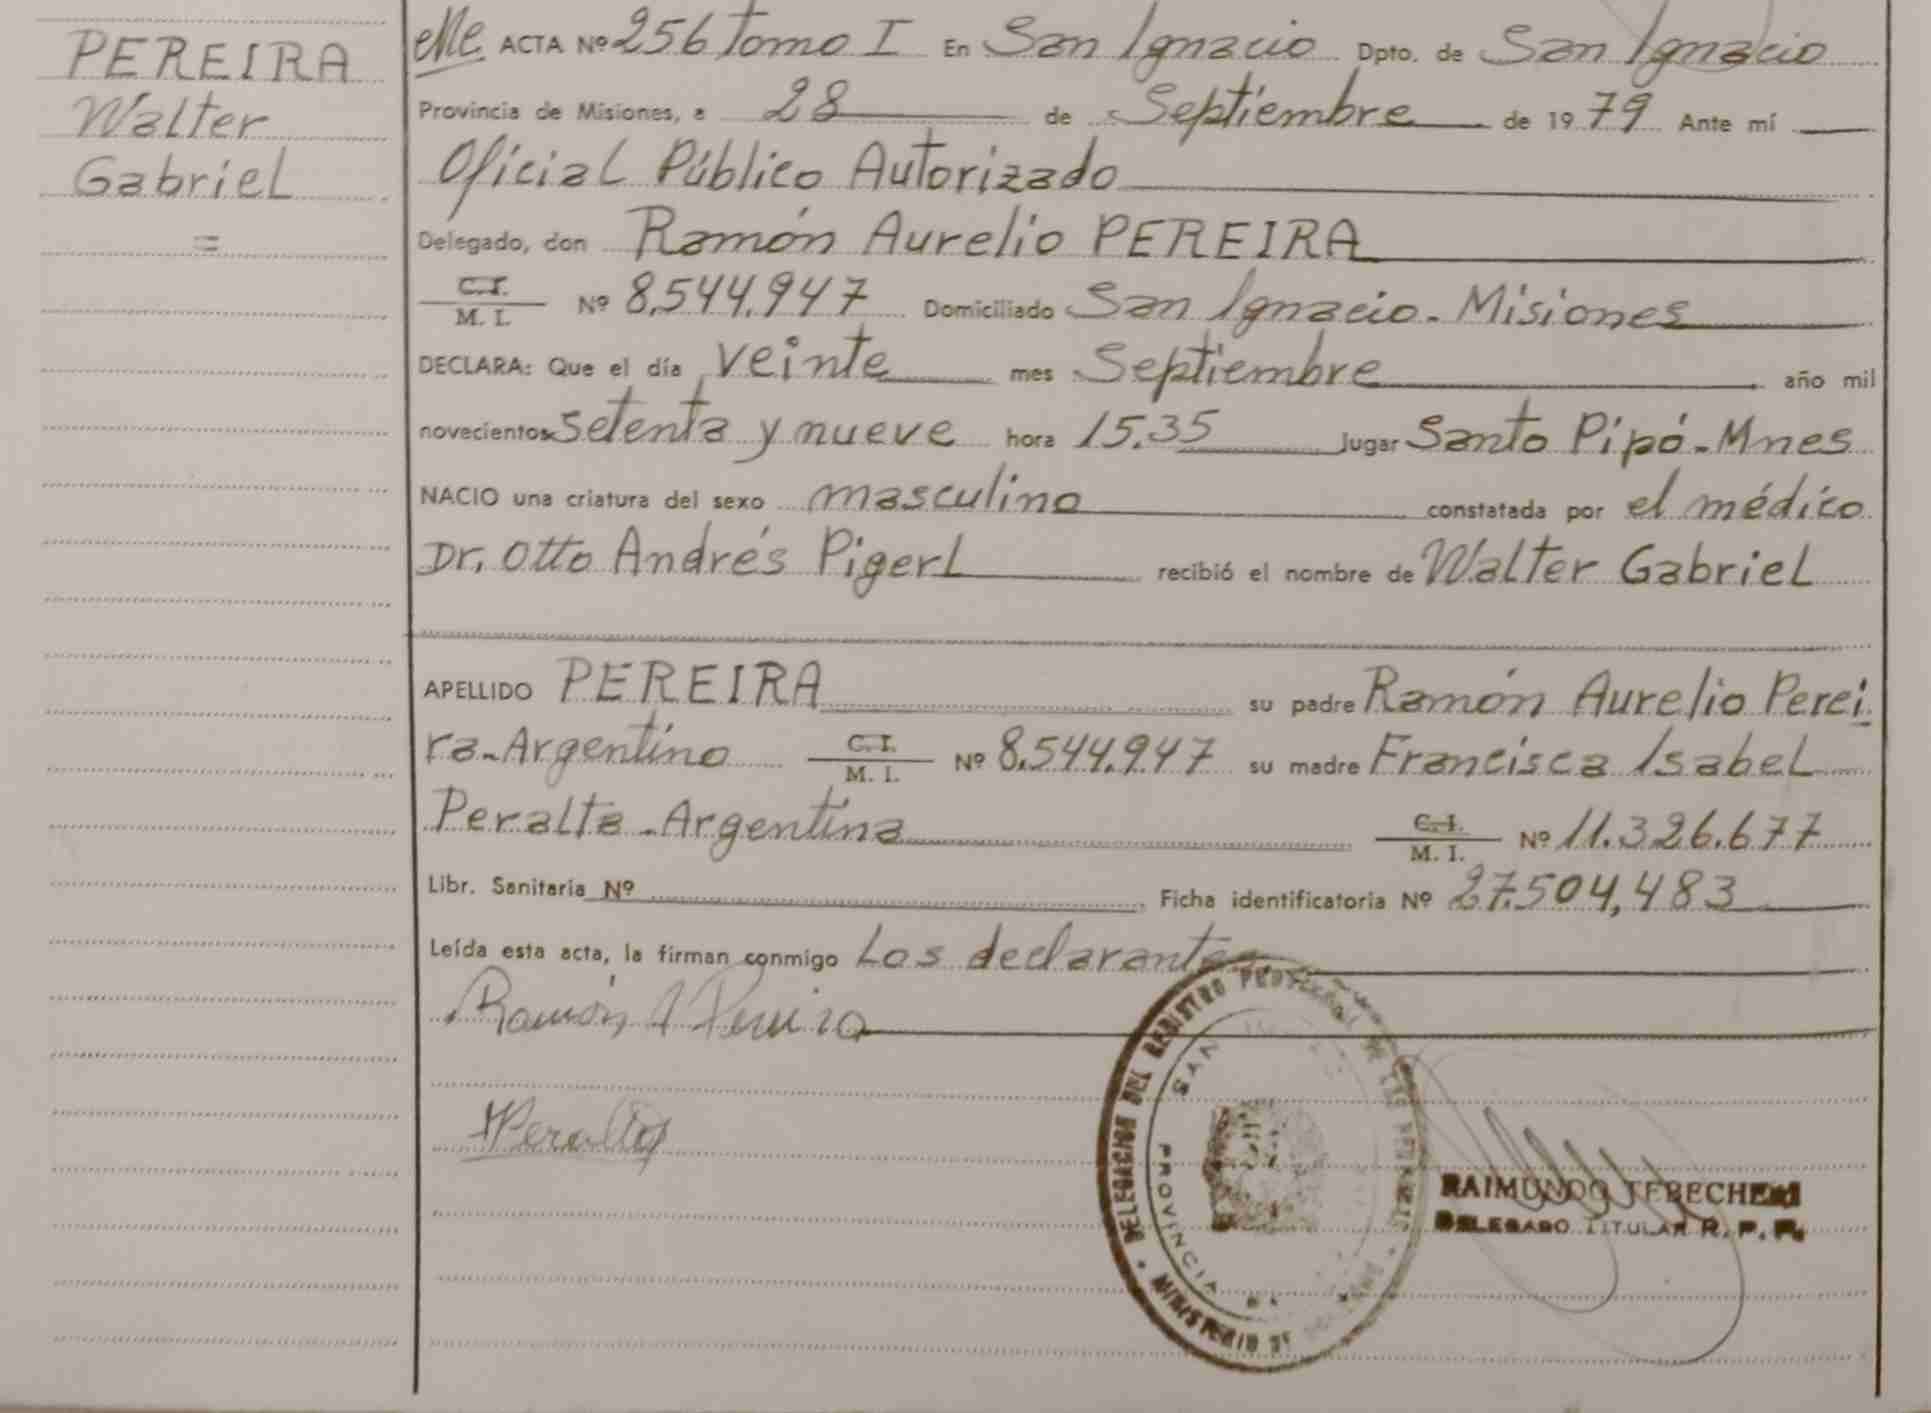 PEREIRA
Walter
Gabriel
=
ACTA Nº 256 Tomo I En San Ignacio Dpto. de San Ignacio
Provincia de Misiones, a 28 de Septiembre de 1979 Ante mí
Oficial Público Autorizado
Delegado, don Ramón Aurelio PEREIRA
C.I.
M. I. Nº 8.544.947 Domiciliado San Ignacio - Misiones
DECLARA: Que el día veinte mes Septiembre año mil
novecientos setenta y nueve hora 15.35 lugar Santo Pipó - Mnes
NACIO una criatura del sexo masculino constatada por el médico
Dr. Otto Andrés Pigerl recibió el nombre de Walter Gabriel
APELLIDO PEREIRA su padre Ramón Aurelio Perei
ra - Argentino C.I. M. I. Nº 8.544.947 su madre Francisca Isabel
Peralta - Argentina C.I. M. I. Nº 11.326.677
Libr. Sanitaria Nº Ficha identificatoria Nº 27.504,483
Leída esta acta, la firman conmigo Los declarantes
Ramón A Pereira
Peralta
DELEGACION DEL REGISTRO PROVINCIAL DE LAS PERSONAS
MINISTERIO DE
SAN
PROVINCIA
RAIMUNDO
DELEGADO TITULAR R. P. P.